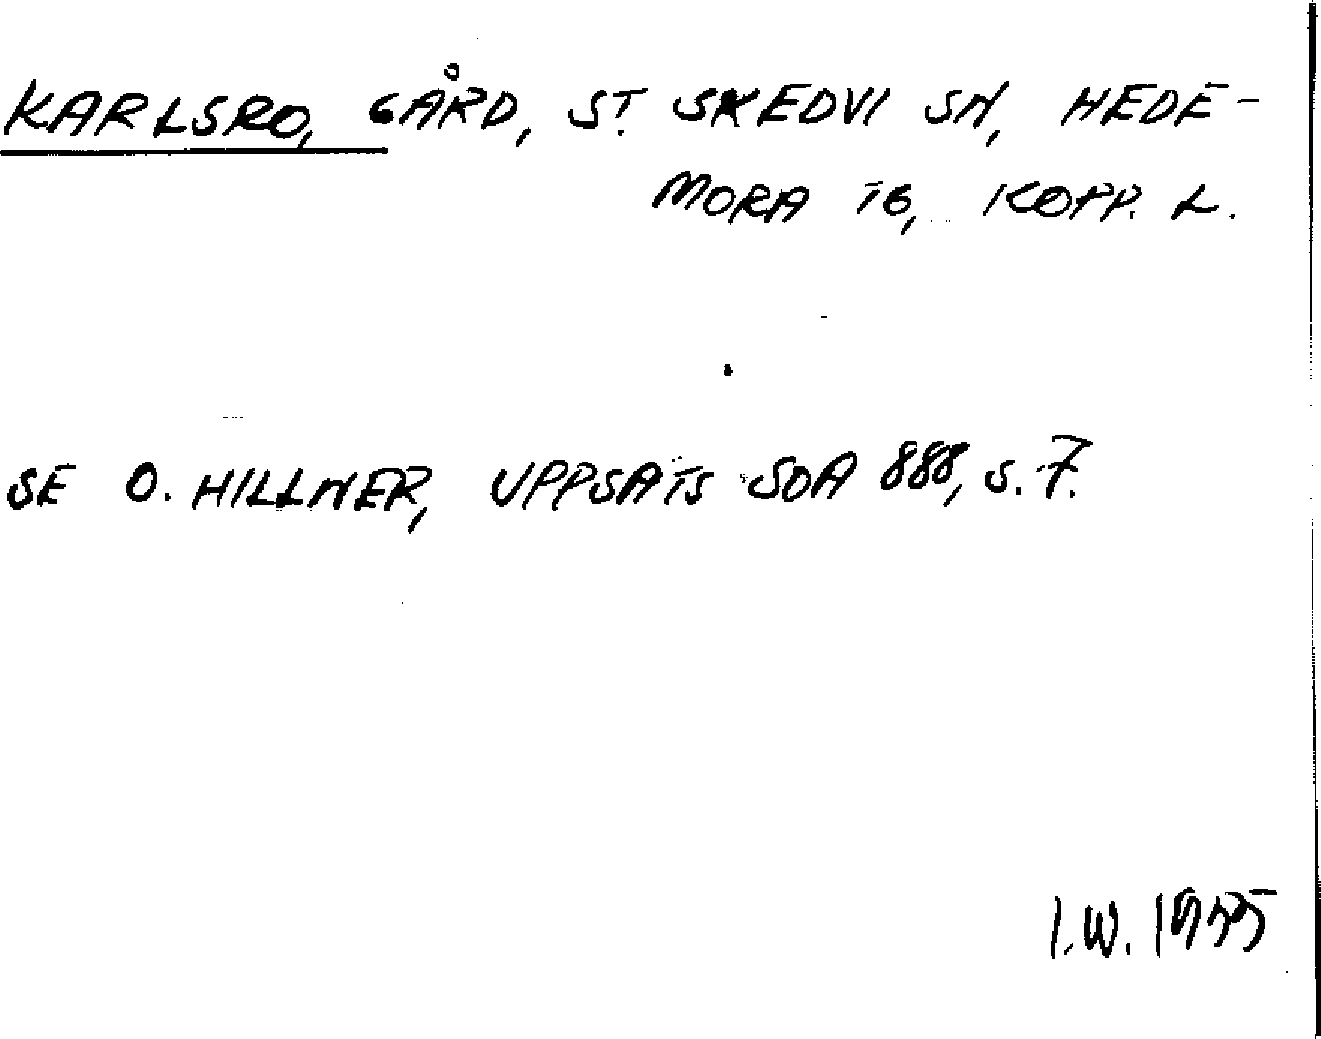 KARLSRO, GÅRD, ST. SKEDVI SN, HEDE-
MORA TG, KOPP. L.
SE O. HILLNER, UPPSATS SOA 888, S. 7.
I.W.